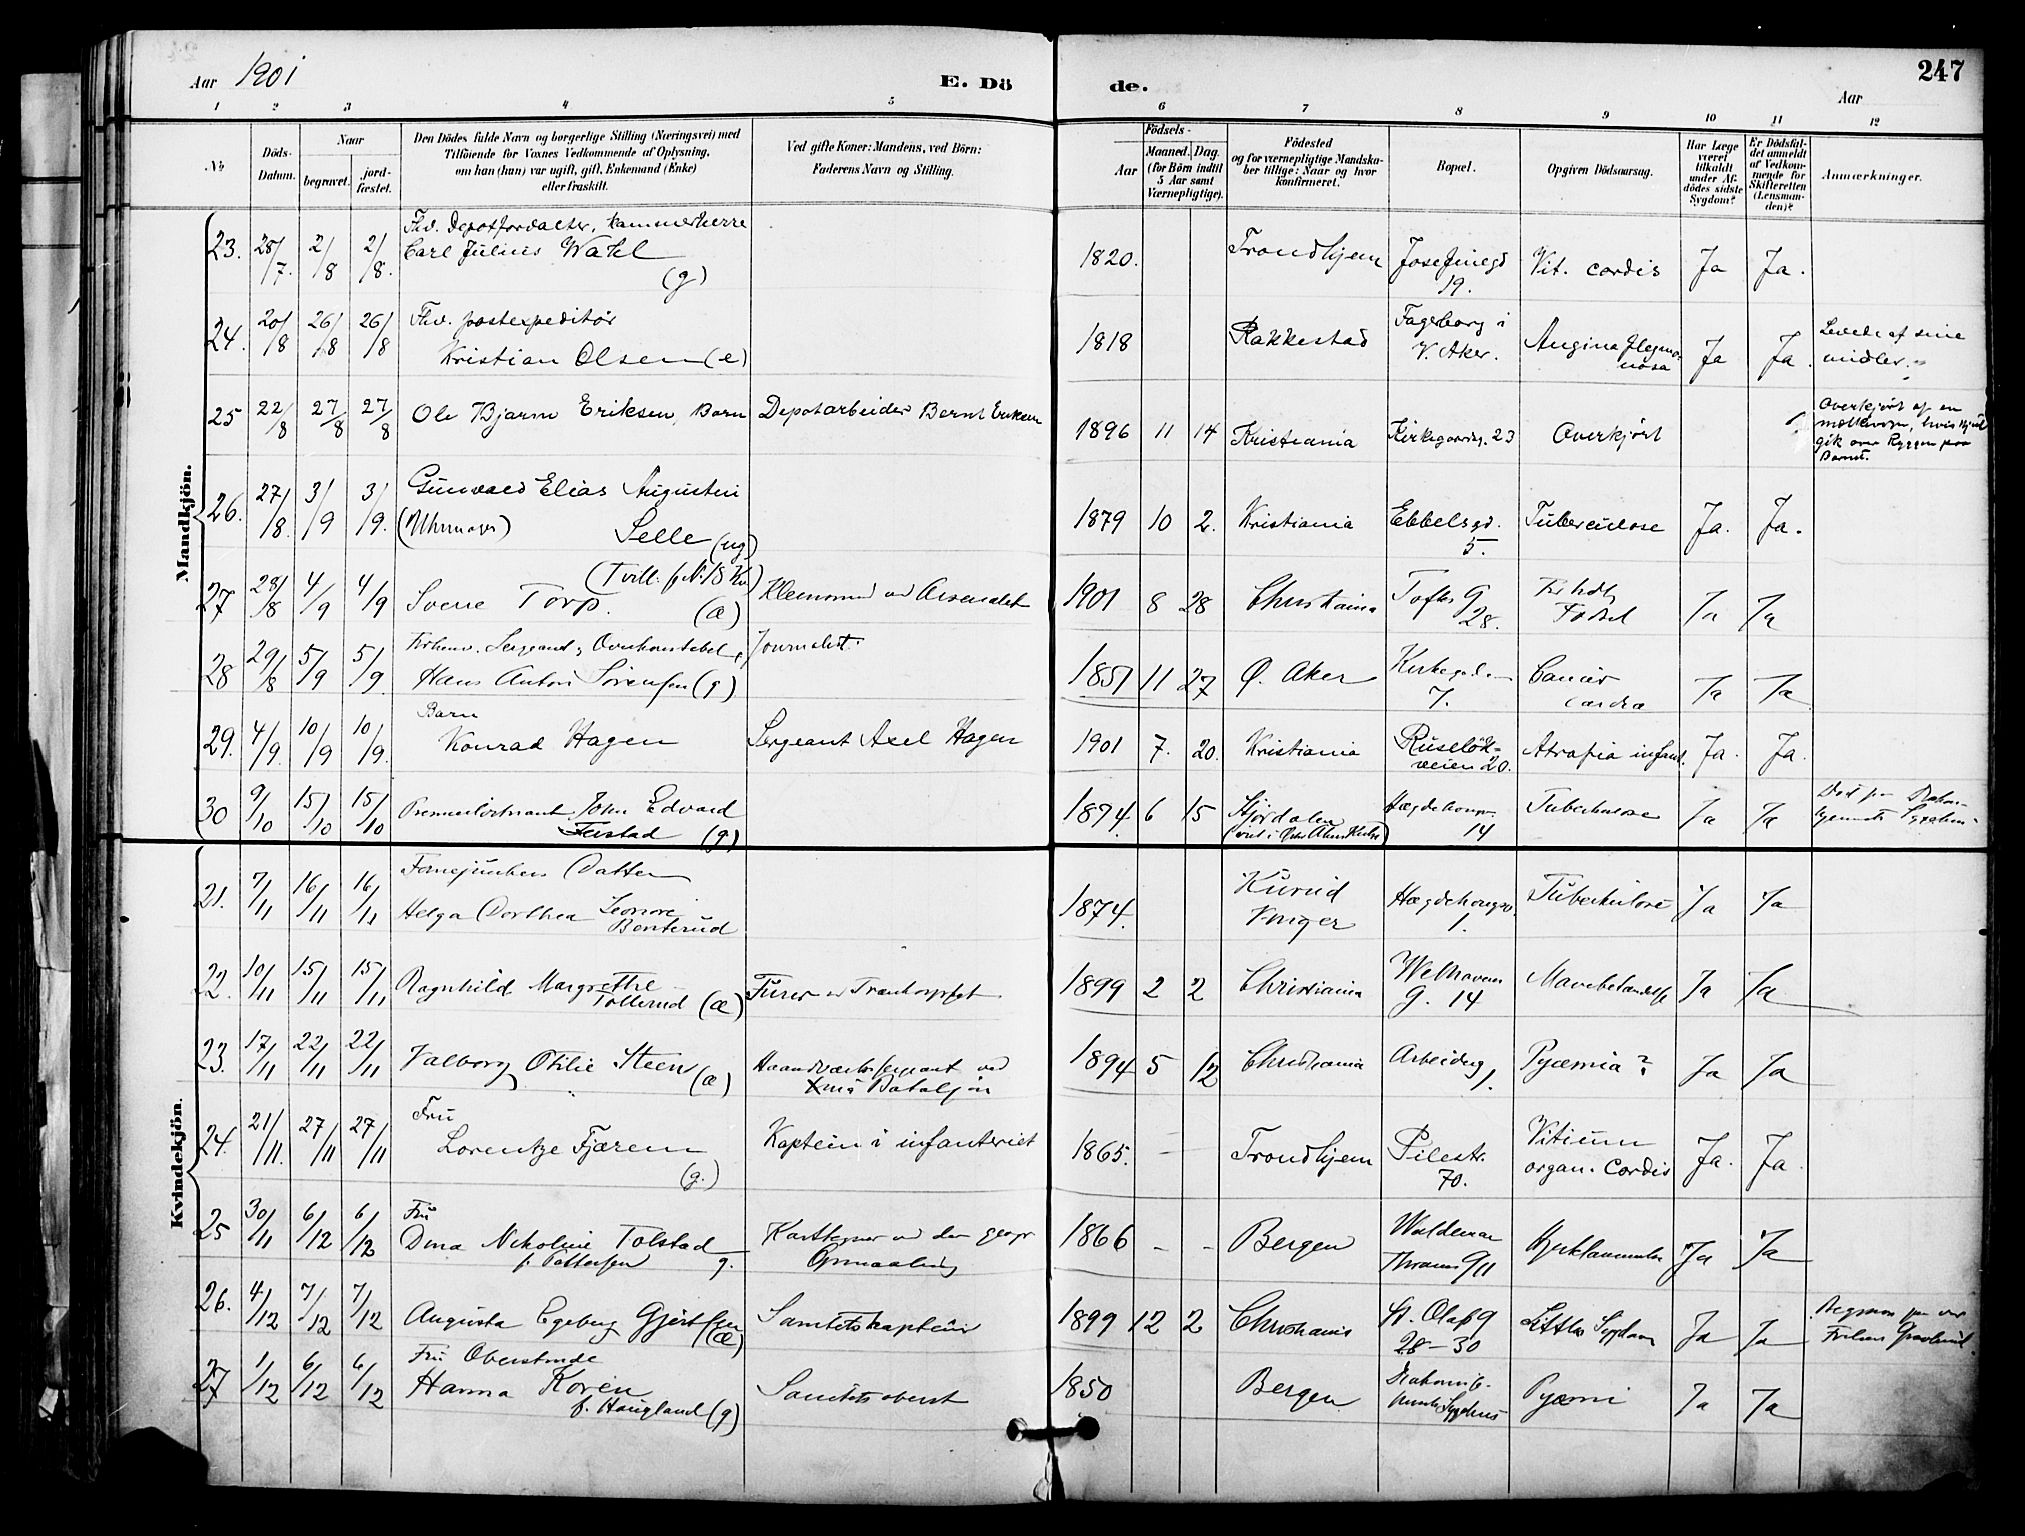 Aar 1901
E. Dö
de.
247
Aar
1 2 3 4 5 6 7 8 9 10 11 12
No
Döds-
Datum.
Naar
begravet.
jord-
fæstet.
Den Dödes fulde Navn og borgerlige Stilling (Næringsvei) med
Tilföiende for Voxnes Vedkommende af Oplysning,
om han (hun) var ugift, gift, Enkemand (Enke)
eller fraskilt.
Ved gifte Koner: Mandens, ved Börn:
Faderens Navn og Stilling.
Födsels-
Aar
Maaned. Dag.
(for Börn indtil
5 Aar samt
Værnepligtige).
Födested
og for værnepligtige Mandska-
ber tillige: Naar og hvor
konfirmeret.
Bopæl.
Opgiven Dödsaarsag.
Har Læge
været
tilkaldt
under Af-
dödes sidste
Sygdom?
Er Dödsfal-
det anmeldt
af Vedkom-
mende for
Skifteretten
(Lensman-
den)?
Anmærkninger.
Mandkjön.
23. 28/7. 2/8 2/8. Fhv. Depotforvalter, kammerherre
Carl Julius Wahl
(g)
1820. Trondhjem Josefinegd
19. Vit. cordis Ja Ja.
24. 20/8 26/8 26/8 Fhv. postexpeditör
Kristian Olsen (e)
1818 Rakkestad Fagerborg i
V. Aker. Angina flegmo-
nosa Ja Ja. Levede af sine
midler.
25 22/8 27/8 27/8 Ole Bjarne Eriksen, Barn Depotarbeider Bernt Eriksen
1896 11 14 Kristiania Kirkegardsg. 23 Overkjört Overkjört af en
melkevogn, hvis Hjul
gik over Ryggen paa
Barnet.
26. 27/8. 3/9 3/9. Gunvald Elias Augustin
(Uhrmager) Selle (ug)
1879 10 2. Kristiania Ebbelsgd.
5. Tuberculose Ja. Ja.
27 28/8 4/9 4/9 (Tvill. f. N. 18 Kv.)
Sverre Torp. (æ) ved Arsenalet
1901 8 28 Christiania Toftes G
28. Födsel Ja Ja
28 29/8 5/9 5/9 Sergeant, Overkonstabel, Journalist.
Hans Anton Sörensen (g)
1851 11 27 Ø. Aker Kirkegd.
7. Cancer
Ja Ja
29. 4/9 10/9 10/9. Barn
Konrad Hagen Sergeant Axel Hagen
1901 7. 20. Kristiania Ruselök-
veien 20. Atrofia infant. Ja. Ja.
30 9/10 15/10 15/10 Premierlöitnant John Edvard
(g)
1874. 6 15 Stjördalen
Hægdehaugv.
14 Tuberkulose Ja Ja
Kvindekjön.
21. 7/11 16/11 16/11 Datter
Helga Dorthea Leonore
Benterud
1874. Kurud
Vinger Hægdehaugsv.
1. Tuberkulose Ja Ja
22. 10/11 15/11 15/11 Ragnhild Margrethe
Tollerud (æ) Furer
1899 2 2 Christiania Welhavens
G. 14 Mavebetændelse Ja Ja
23. 17/11 22/11 22/11 Valborg Otilie Steen (æ) Haandværkssergeant ved
Bataljon
1894 5 12 Christiania Arbeiderg
1. Pyæmia? Ja Ja
24. 21/11. 27/11 27/11 Fru
Lorentze Fjæren
(g.) Kaptein i infanteriet
1865. — — Trondhjem Pilestr.
70. Vitium
organ. cordis Ja. Ja.
25 30/11 6/12 6/12 Fru
Dina Nikoline Tolstad
f. Pettersen g. Karttegner ved den geogr
Opmaaling
1866 - - Bergen Waldemar
Thranes G 11 Hjerklammelse Ja Ja
26. 4/12 7/12 7/12 Augusta Egeberg Gjertsen
(æ) Sanitetskaptein
1899 12 2 Christiania St. Olafs G
28-30 Littles Sygdom Ja Ja Begraven paa vor
Frelsers Gravlund.
27 1/12 6/12 6/12 Fru Oberstinde
Hanna Koren
f. Haugland (g) Sanitetsoberst
1850 Bergen
Pyæmi Ja Ja